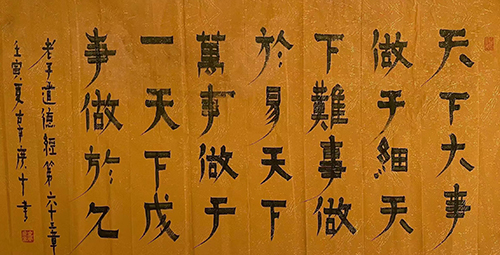 天下大事
做于細天
下難事做
於易天下
萬事做于
一天下戊
事做於久
老子道德經第六十三章
壬寅夏辛庚十書